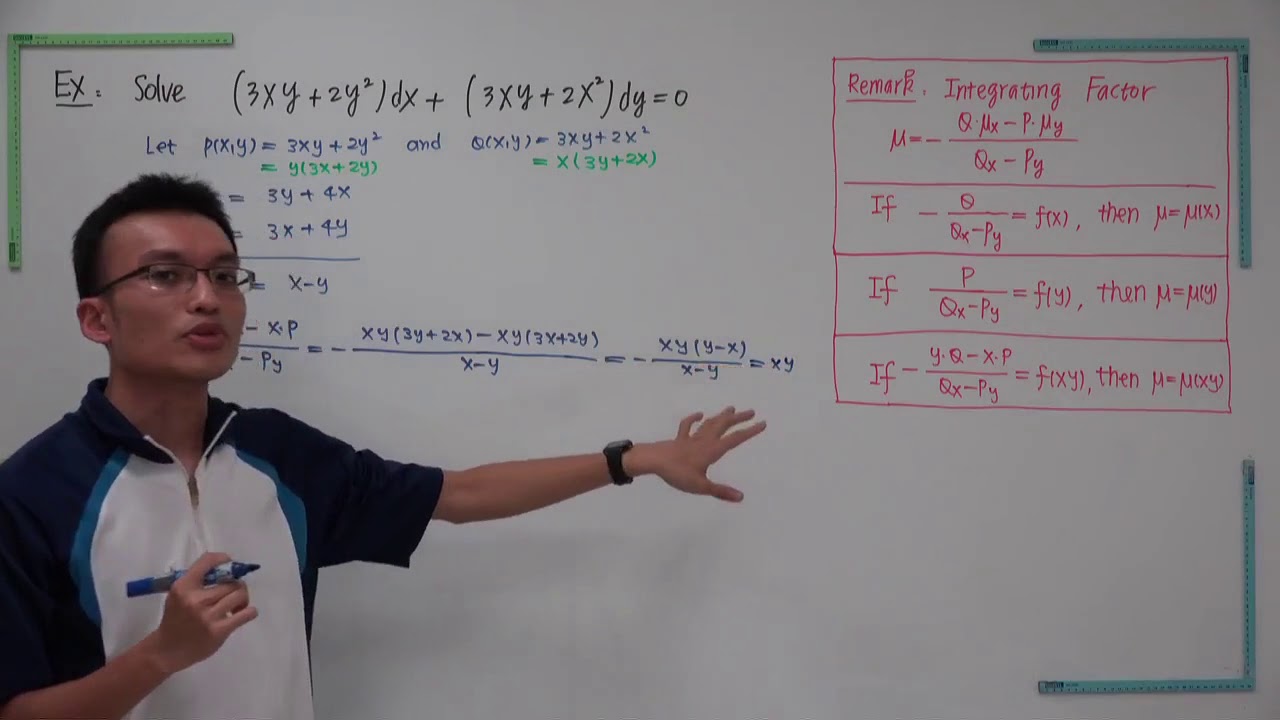 Ex: Solve (3xy+2y²)dx+ (3xy+2x²)dy=0
Let P(x,y)= 3xy+2y² and Q(x,y)= 3xy+2x²
= y(3x+2y) = x(3y+2x)
= 3y+4x
= 3x+4y
= x-y
- x·P / - Py = - xy(3y+2x)-xy(3x+2y) / x-y = - xy(y-x) / x-y = xy
Remark. Integrating Factor
μ=- Q·μx-P·μy / Qx-Py
If - Q / Qx-Py = f(x), then μ=μ(x)
If P / Qx-Py = f(y), then μ=μ(y)
If - y·Q-x·P / Qx-Py = f(xy), then μ=μ(xy)